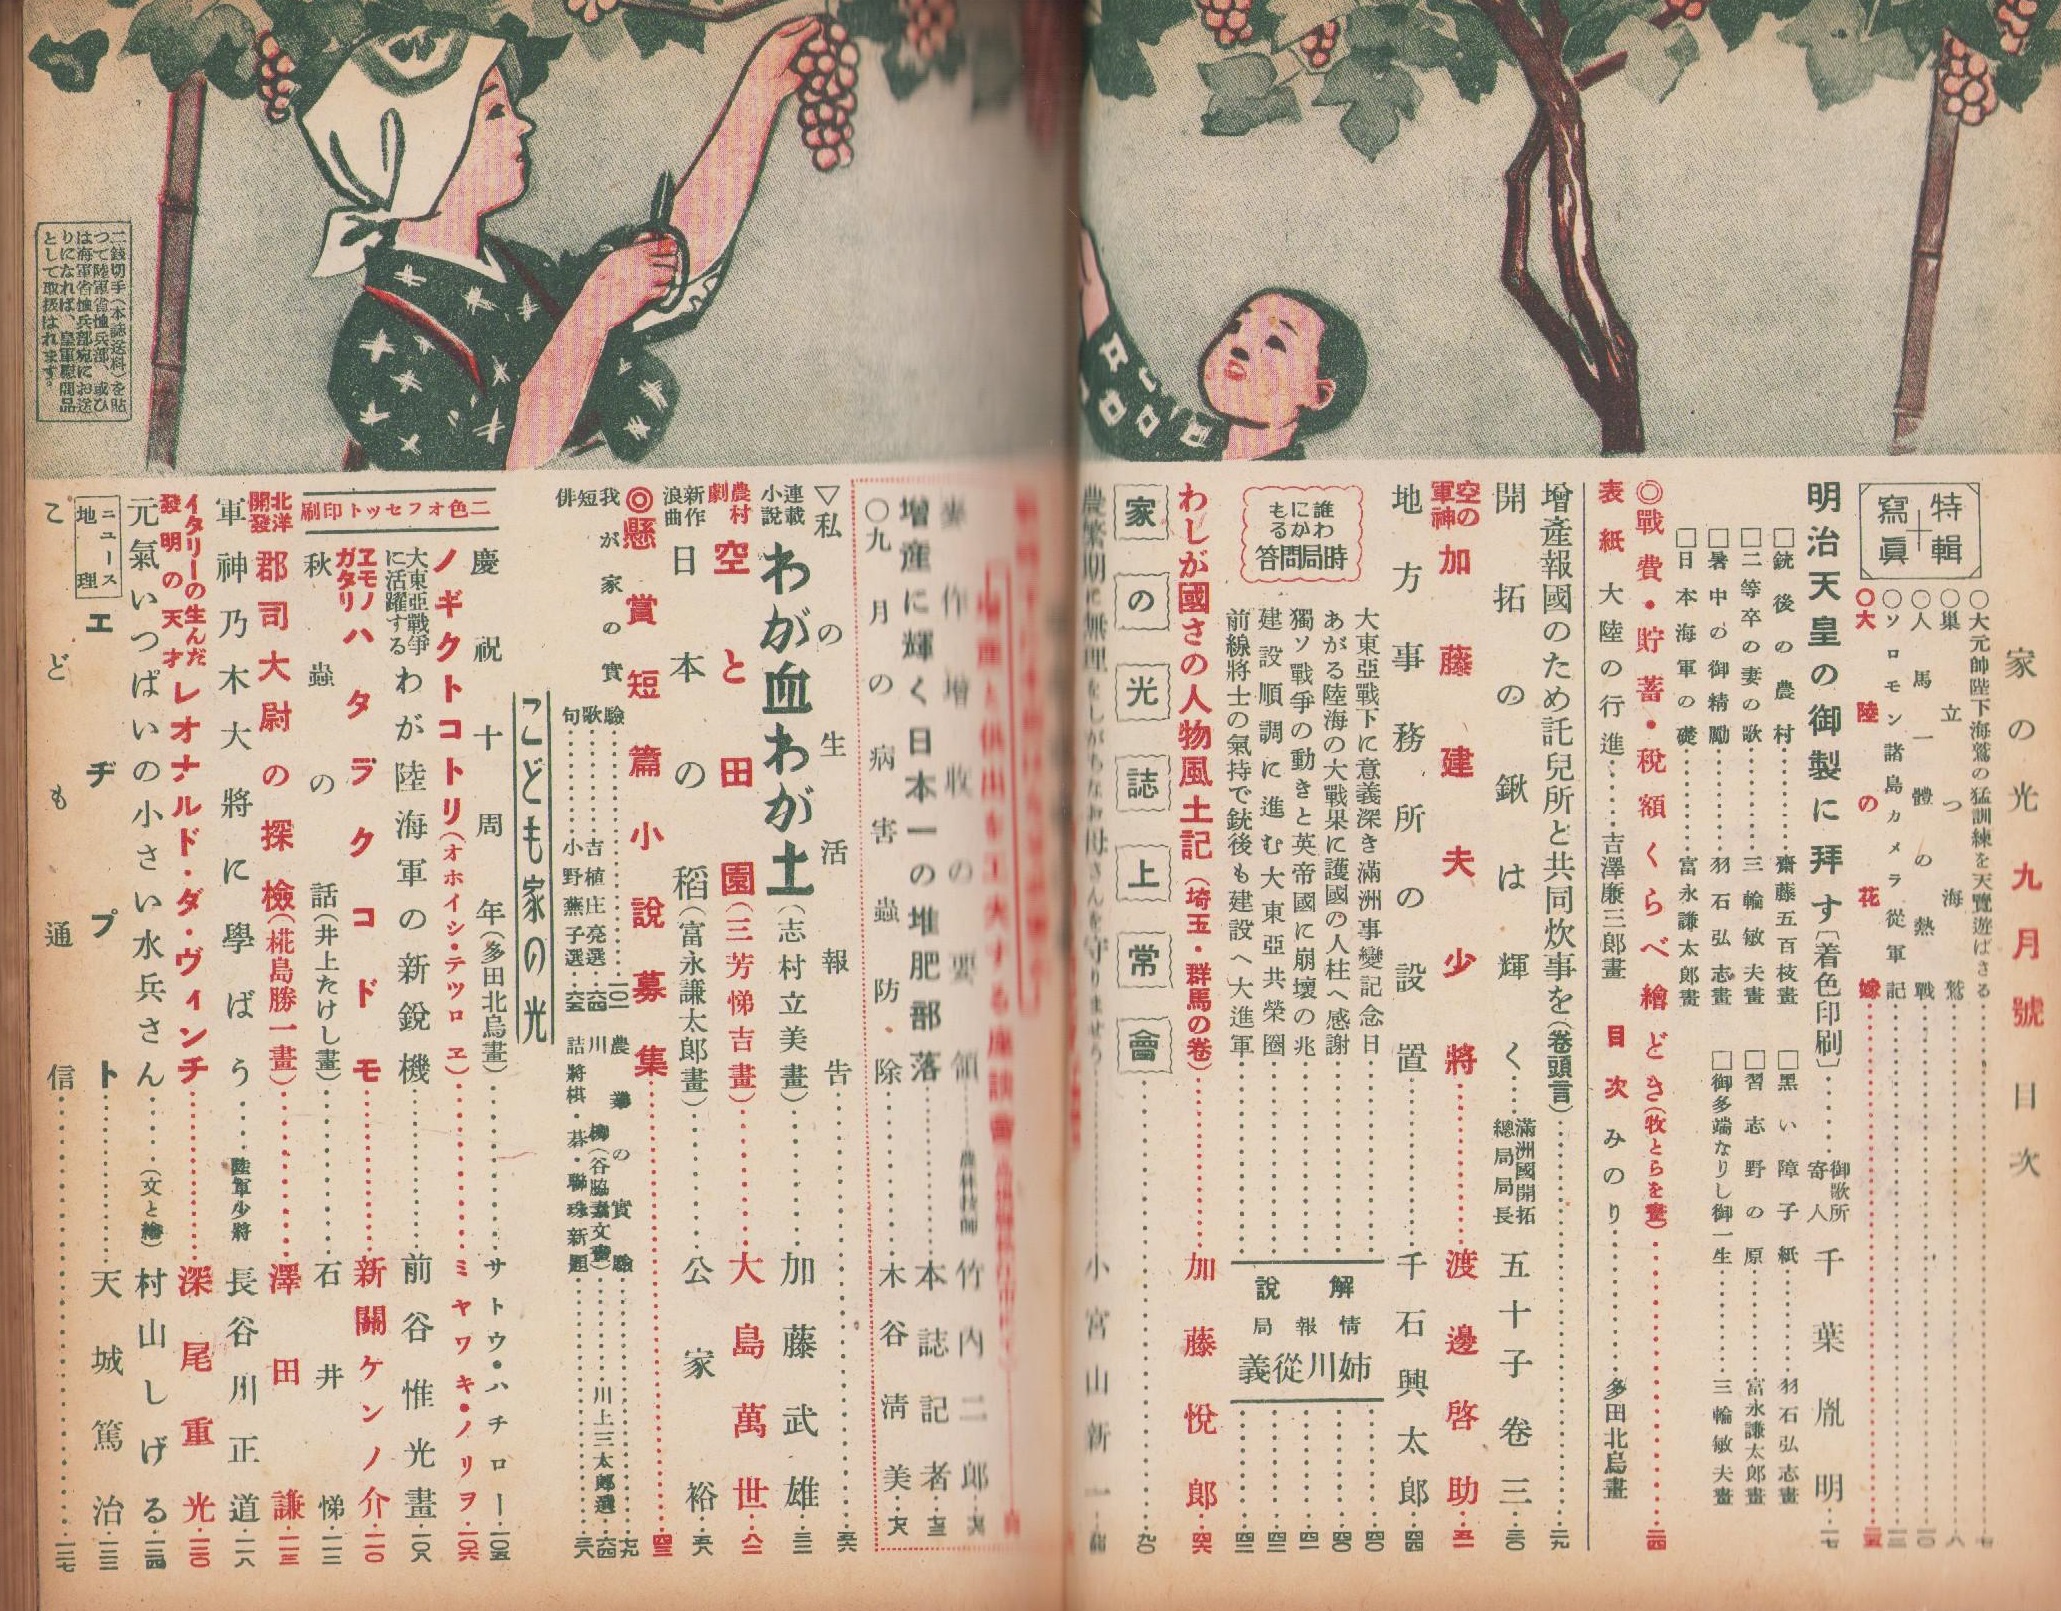 家の光 九月號 目次
特輯寫眞
○大元帥陛下海鷲の猛訓練を天覽遊ばさる……七
○巢立つ海鷲……八
○人馬一體の熱戰……一〇
○ソロモン諸島カメラ從軍記
○大陸の花嫁
明治天皇の御製に拜す〔着色印刷〕……御歌所寄人 千葉胤明…一七
□銃後の農村……齋藤五百枝畫
□二等卒の妻の歌……三輪敏夫畫
□暑中の御精勵……羽石弘志畫
□日本海軍の礎……富永謙太郎畫
□黑い障子紙……羽石弘志畫
□習志野の原……富永謙太郎畫
□御多端なりし御一生……三輪敏夫畫
◎戰費・貯蓄・稅額くらべ繪どき(牧とらを畫)……二四
表紙 大陸の行進……吉澤廉三郎畫
目次 みのり……多田北烏畫
增產報國のため託兒所と共同炊事を(卷頭言)……一九
開拓の鍬は輝く……滿洲國開拓總局局長 五十子卷三…二〇
空の軍神 加藤建夫少將……渡邊啓助
地方事務所の設置……千石興太郎…四四
誰にもわかる時局問答
大東亞戰下に意義深き滿洲事變記念日……四〇
あがる陸海の大戰果に護國の人柱へ感謝……四〇
獨ソ戰爭の動きと英帝國に崩壞の兆……四一
建設順調に進む大東亞共榮圈……四二
前線將士の氣持で銃後も建設へ大進軍……四三
解說 情報局 姉川從義
わしが國さの人物風土記(埼玉・群馬の卷)……加藤悅郎…四六
家の光誌上常會……九〇
農繁期に無理をしがちなお母さんを守りませう……小宮山新一
麥作增收の要領……農林技師 竹內二郎
增產に輝く日本一の堆肥部落……本誌記者
○九月の病害蟲防除……木谷淸美
▽私の生活報告……五六
連載小說 わが血わが土(志村立美畫)……加藤武雄…三二
農村劇 空と田園(三芳悌吉畫)……大島萬世…八二
新作浪曲 日本の稻(富永謙太郎畫)……公家裕…五八
◎懸賞短篇小說募集……四三
我が家の實驗……一〇一
短歌……吉植庄亮選…六四
俳句……小野蕪子選…六五
農業の實驗……七九
川柳(谷脇素文畫)……川上三太郎選…六四
詰將棋・碁・聯珠新題……三八
こども家の光
慶祝十周年(多田北烏畫)……サトウ・ハチロー…一〇五
二色オフセット印刷
ノギクトコトリ(オホイシ・テツロ ヱ)……ミヤワキ・ノリヲ…一〇六
大東亞戰爭に活躍する わが陸海軍の新銳機……前谷惟光畫…一〇八
ヱモノガタリ ハタラクコドモ……新關ケンノ介…一一〇
秋の蟲の話(井上たけし畫)……石井悌…一一二
北洋開發 郡司大尉の探檢(椛島勝一畫)……澤田謙…一一三
軍神乃木大將に學ばう……陸軍少將 長谷川正道…一一八
イタリーの生んだ發明の天才 レオナルド・ダ・ヴィンチ……深尾重光…一二〇
元氣いつぱいの小さい水兵さん……(文と繪) 村山しげる…一二四
ニュース地理 エヂプト……天城篤治…一二三
こども通信……一二七
二錢切手(本誌送料)を貼つて陸軍省恤兵部、或ひは海軍省恤兵部宛にお送りになれば、皇軍慰問品として取扱はれます。